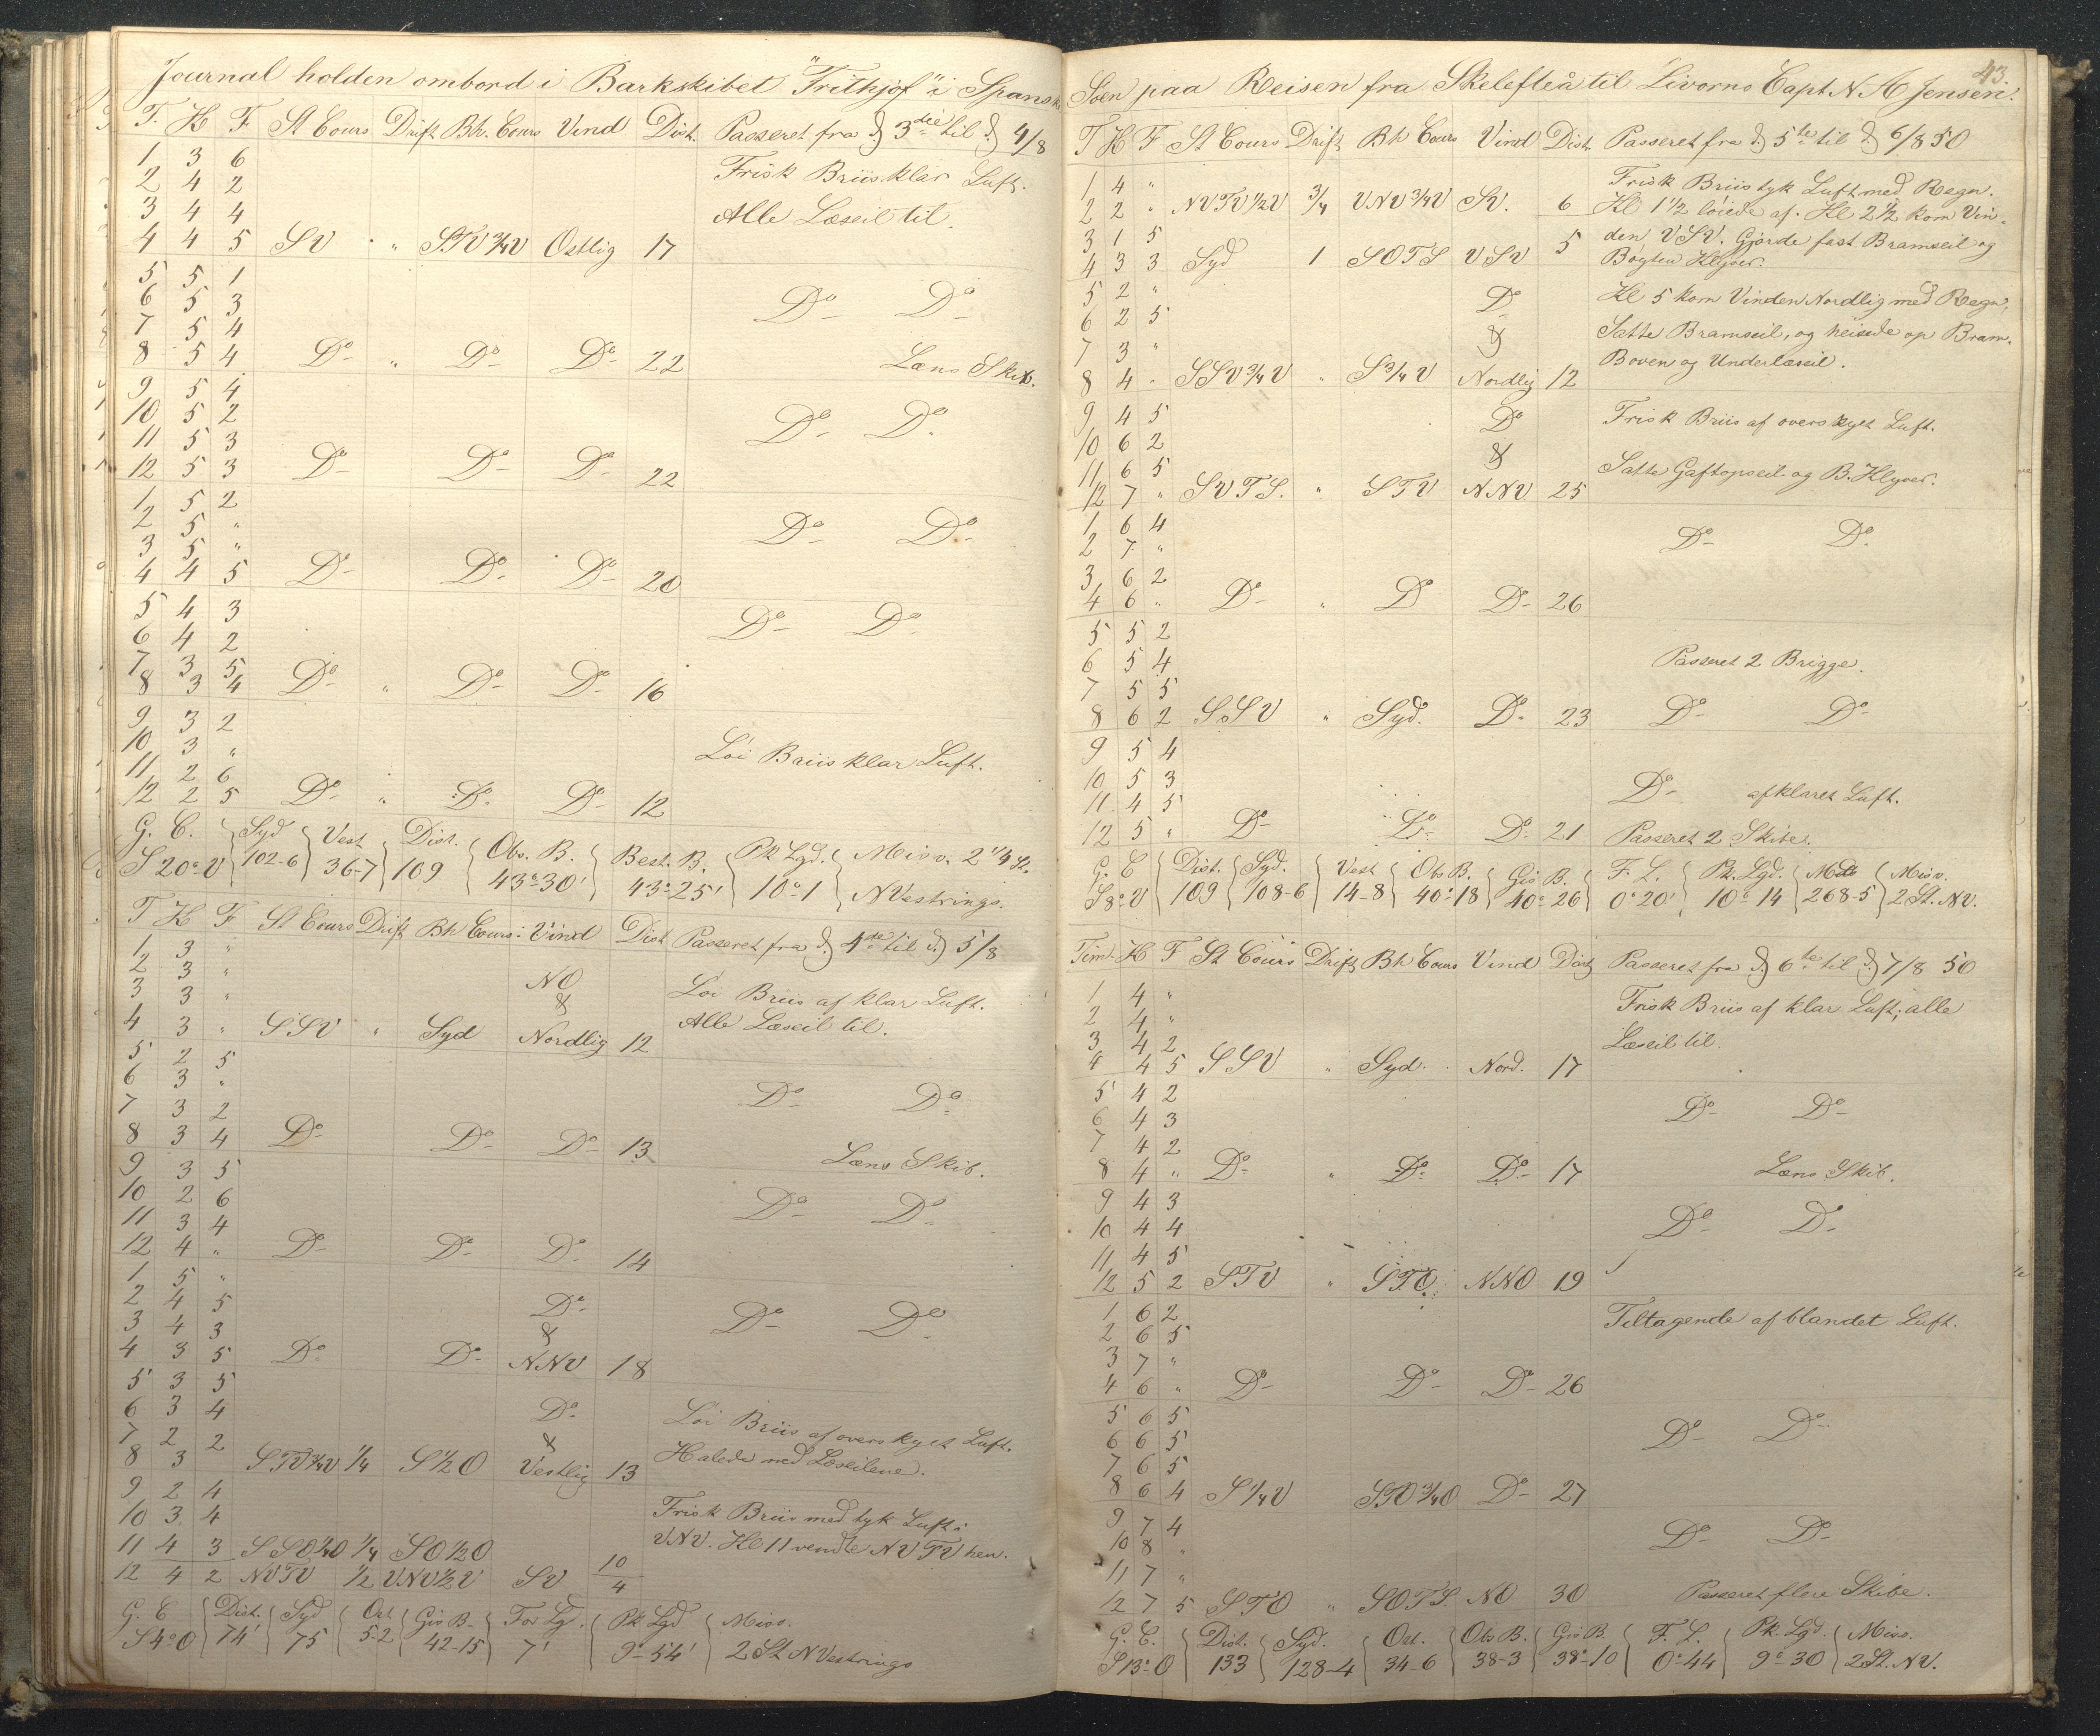 Journal holden ombord i Barkskibet "Frithjof" i Spanske
T. K F St Cours Drift Bh. Cours Vind Dist. Passeret fra d 3die til d 4/8
1 3 6 Frisk Briis klar Luft.
2 4 2
3 4 4 Alle Læseil til.
4 4 5 SV " STV 3/4 V Ostlig 17
5 5 1
6 5 3 Do Do
7 5 4
8 5 4 Do " Do Do 22 Læns Skib.
9 5 4
10 5 2 Do Do
11 5 3
12 5 3 Do Do Do 22
1 5 2
2 5 " Do Do
3 5 "
4 4 5 Do Do Do 20
5 4 3 Do Do
6 4 2
7 3 5
8 3 4 Do " Do Do 16
9 3 2
10 3 " Löi Briis klar Luft.
11 2 6
12 2 5 Do " Do Do 12
G. C. Syd Vest Dist. Obs. B. Best. B. Pk Lgd. Misv. 2 1/4 St.
S 20° V 102-6 36-7 109 43°30' 43°25' 10°1 NVestrings.
T K F St Cours Drift Bh Cours Vind Dist Passeret fra d 4de til d 5/8
1 3 "
2 3 " NO Löi Briis af klar Luft.
3 3 " & Alle Læseil til.
4 3 " SSV " Syd Nordlig 12
5 2 5
6 3 " Do Do
7 3 2
8 3 4 Do Do Do 13 Læns Skib.
9 3 5
10 2 6 Do Do
11 3 4
12 4 " Do Do Do 14
1 5 "
2 4 5 Do Do Do
3 4 3 &
4 3 5 Do Do NNV 18
5 3 5
6 3 4 Do Löi Briis af overskyet Luft.
7 2 2 & Halede ned Læseilene.
8 3 STV 3/4 V 1/4 S 1/2 O Vestlig 13
9 2 4
10 3 4 Frisk Briis med tyk Luft i
11 4 3 SSO 1/4 O 1/4 SO 1/2 O 10 VNV. Kl 11 vendte NVTV hen.
12 4 2 NVTV 1/2 VNV 1/2 V SV 4
G. C Dist. Syd Ost Gis B. For Lg. Pk Lgd Misv.
S 4° O 74' 75 5-2 42-15 7' 9°54' 2 St NVestrings
43.
Söen paa Reisen fra Skelefteå til Livorno Capt. N. A Jensen.
T K F St Cours Drift Bh Cours Vind Dist. Passeret fra d 5te til d 6/8 50
1 4 " Frisk Briis tyk Luft med Regn.
2 2 " NVTV 1/2 V 3/4 VNV 3/4 V SV. 6 Kl 1 1/2 löiede af. Kl 2 1/2 kom Vin-
3 1 5 den VSV. Gjorde fast Bramseil og
4 3 3 Syd 1 SOTS VSV 5 Bagten Klyver.
5 2 " Do Kl 5 kom Vinden Nordlig med Regn,
6 2 5 & Satte Bramseil, og heisede op Bram.
7 3 " Boven og Underlæseil.
8 4 " SSV 3/4 V " S 3/4 V Nordlig 12
9 4 5 Do Frisk Briis af overskyet Luft.
10 6 2 &
11 6 5 Satte Gaftopseil og B. Klyver.
12 7 " SVTS. " STV NNV 25
1 6 4
2 7 " Do Do
3 6 2
4 6 " Do " Do Do 26
5 5 2
6 5 4 Passeret 2 Brigge.
7 5 5
8 6 2 SSV " Syd. Do 23 Do Do
9 5 4
10 5 3 Do afklaret Luft.
11 4 5
12 5 " Do Do Do 21 Passeret 2 Skibe.
G. C Dist. Syd. Vest Obs B. Gis B. F. L. Pk. Lgd. Misv.
S 8° V 109 108-6 14-8 40°18 40°26 0°20' 10°14 268-5 2 St. NV.
Tim. K F St Cours Drift Bh Cours Vind Dist Passeret fra d 6te til d 7/8 50
1 4 " Frisk Briis af klar Luft; alle
2 4 " Læseil til.
3 4 2
4 4 5 SSV " Syd. Nord. 17
5 4 2
6 4 3 Do Do
7 4 2
8 4 " Do " Do Do 17 Læns Skib.
9 4 3
10 4 4 Do Do
11 4 5
12 5 2 STV " STO NNO 19
1 6 2 Tiltagende af blandet Luft.
2 6 5
3 7 "
4 6 " Do Do Do 26
5 6 5
6 6 5 Do Do
7 6 5
8 6 4 S 1/4 V STO 3/4 O Do 27
9 7 4
10 8 " Do Do
11 7 "
12 7 5 STO " SOTS NO 30 Passeret flere Skibe.
G. C. Dist. Syd. Ost. Obs B. Gis B. F. L. Pk. Lgd. Misv.
S 13° O 133 128-4 34-6 38-3 38°10 0°44 9°30 2 St. NV.